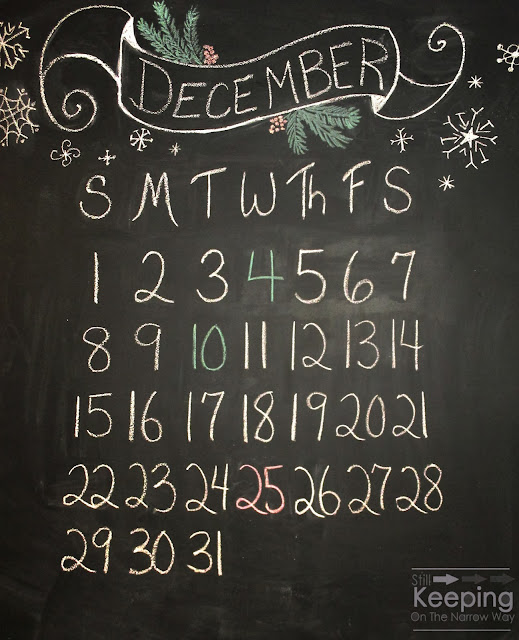 DECEMBER
S M T W Th F S
1 2 3 4 5 6 7
8 9 10 11 12 13 14
15 16 17 18 19 20 21
22 23 24 25 26 27 28
29 30 31
Still
Keeping
On The Narrow Way